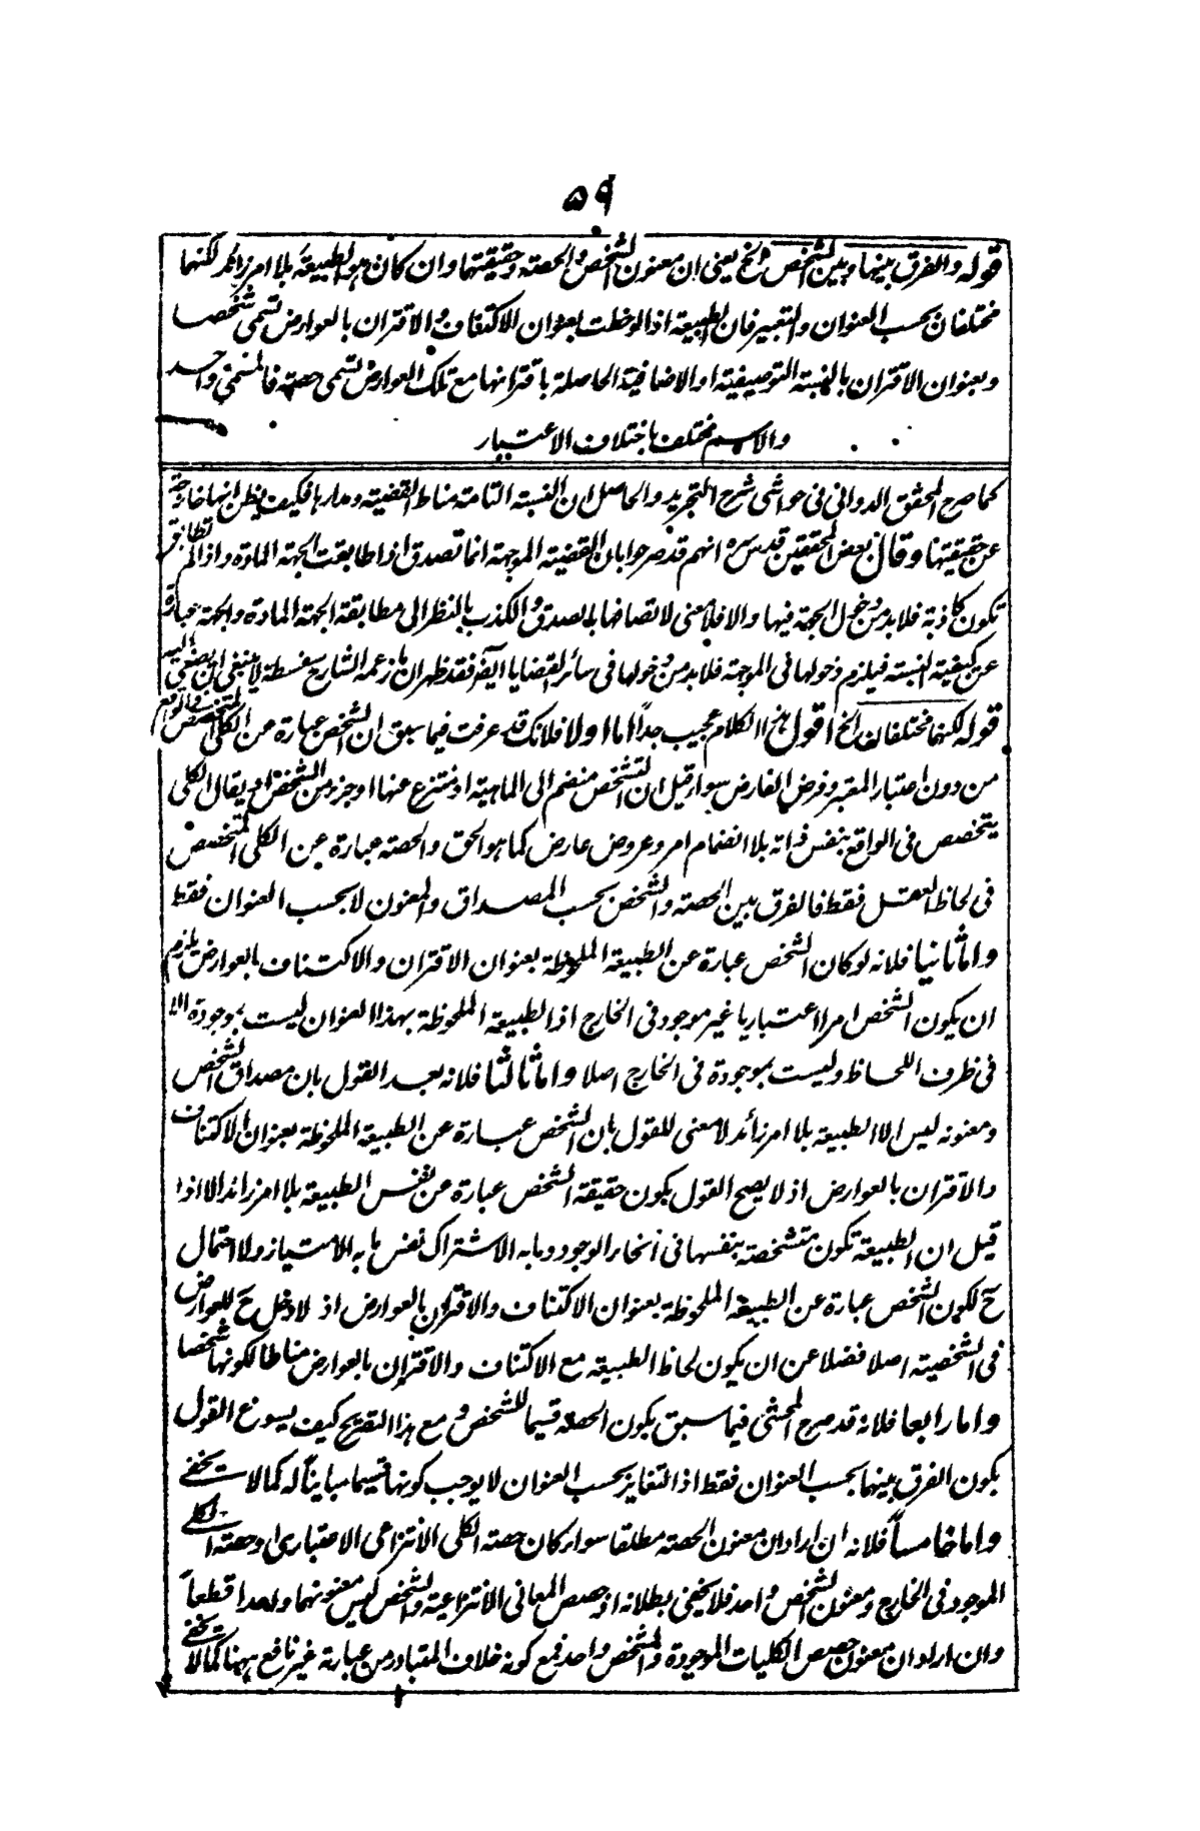 ٥٩
قوله والفرق بينها وبين الشخص الخ يعنى ان معنون الشخص والحصة وحقيقتهما وان كان هو الطبيعة بلا امر زائد لكنهما
مختلفان بحسب العنوان والتعبير فان الطبيعة اذا لوحظت بعنوان الاكتناف والاقتران بالعوارض تسمى شخصا
وبعنوان الاقتران بالنسبة التوصيفية او الاضافية الحاصلة باقترانها مع تلك العوارض تسمى حصة فالمسمى واحد
والاسم مختلف باختلاف الاعتبار
كما صرح المحقق الدوانى فى حواشى شرح التجريد والحاصل ان النسبة التامة مناط القضية ومدارها فكيف يظن انها خارجة
عن حقيقتها وقال بعض المحققين قدس سره انهم قد صرحوا بان القضية الموجهة انما تصدق اذا طابقت الجهة المادة واذا لم تطابق
تكون كاذبة فلا بد من دخول الجهة فيها والا فلا معنى لاتصافها بالصدق والكذب بالنظر الى مطابقة الجهة المادة والجهة عبارة
عن كيفية النسبة فيلزم دخولها فى الموجهة فلا بد من دخولها فى سائر القضايا ايضا فقد ظهر ان ما زعمه الشارح سفسطة لا ينبغى ان يصغى اليه
قوله لكنهما مختلفان الخ اقول هذا الكلام عجيب جداً اما اولا فلانك قد عرفت فيما سبق ان الشخص عبارة عن الكلى المتخصص فى الواقع
من دون اعتبار المعتبر وفرض الفارض سواء قيل ان التشخص منضم الى الماهية او منتزع عنها او جزء من الشخص او يقال الكلى
يتخصص فى الواقع بنفس ذاته بلا انضمام امر وعروض عارض كما هو الحق والحصة عبارة عن الكلى المتخصص
فى لحاظ العقل فقط فالفرق بين الحصة والشخص بحسب المصداق والمعنون لا بحسب العنوان فقط
واما ثانيا فلانه لو كان الشخص عبارة عن الطبيعة الملحوظة بعنوان الاقتران والاكتناف بالعوارض يلزم
ان يكون الشخص امرا اعتباريا غير موجود فى الخارج اذ الطبيعة الملحوظة بهذا العنوان ليست بموجودة الا
فى ظرف اللحاظ وليست بموجودة فى الخارج اصلا واما ثالثا فلانه بعد القول بان مصداق الشخص
ومعنونه ليس الا الطبيعة بلا امر زائد لا معنى للقول بان الشخص عبارة عن الطبيعة الملحوظة بعنوان الاكتناف
والاقتران بالعوارض اذ لا يصح القول بكون حقيقة الشخص عبارة عن نفس الطبيعة بلا امر زائد الا اذا
قيل ان الطبيعة تكون متشخصة بنفسها فى انحاء الوجود وما به الاشتراك نفس ما به الامتياز ولا احتمال
ح لكون الشخص عبارة عن الطبيعة الملحوظة بعنوان الاكتناف والاقتران بالعوارض اذ لا دخل ح للعوارض
فى الشخصية اصلا فضلا عن ان يكون لحاظ الطبيعة مع الاكتناف والاقتران بالعوارض مناطا لكونها شخصا
واما رابعا فلانه قد صرح المحشى فيما سبق بكون الحصة قسيما للشخص ومع هذا التصريح كيف يسوغ القول
بكون الفرق بينهما بحسب العنوان فقط اذ التغاير بحسب العنوان لا يوجب كونها قسيما مبايناً له كما لا يخفى
واما خامساً فلانه ان اراد ان معنون الحصة مطلقا سواء كان حصة الكلى الانتزاعى الاعتبارى او حصة الكلى
الموجود فى الخارج ومعنون الشخص واحد فلا يخفى بطلانه اذ حصص المعانى الانتزاعية والشخص ليس معنونهما واحدا قطعاً
وان اراد ان معنون حصص الكليات الموجودة والشخص واحد فمع كونه خلاف المتبادر من عبارته غير نافع ههنا كما لا يخفى